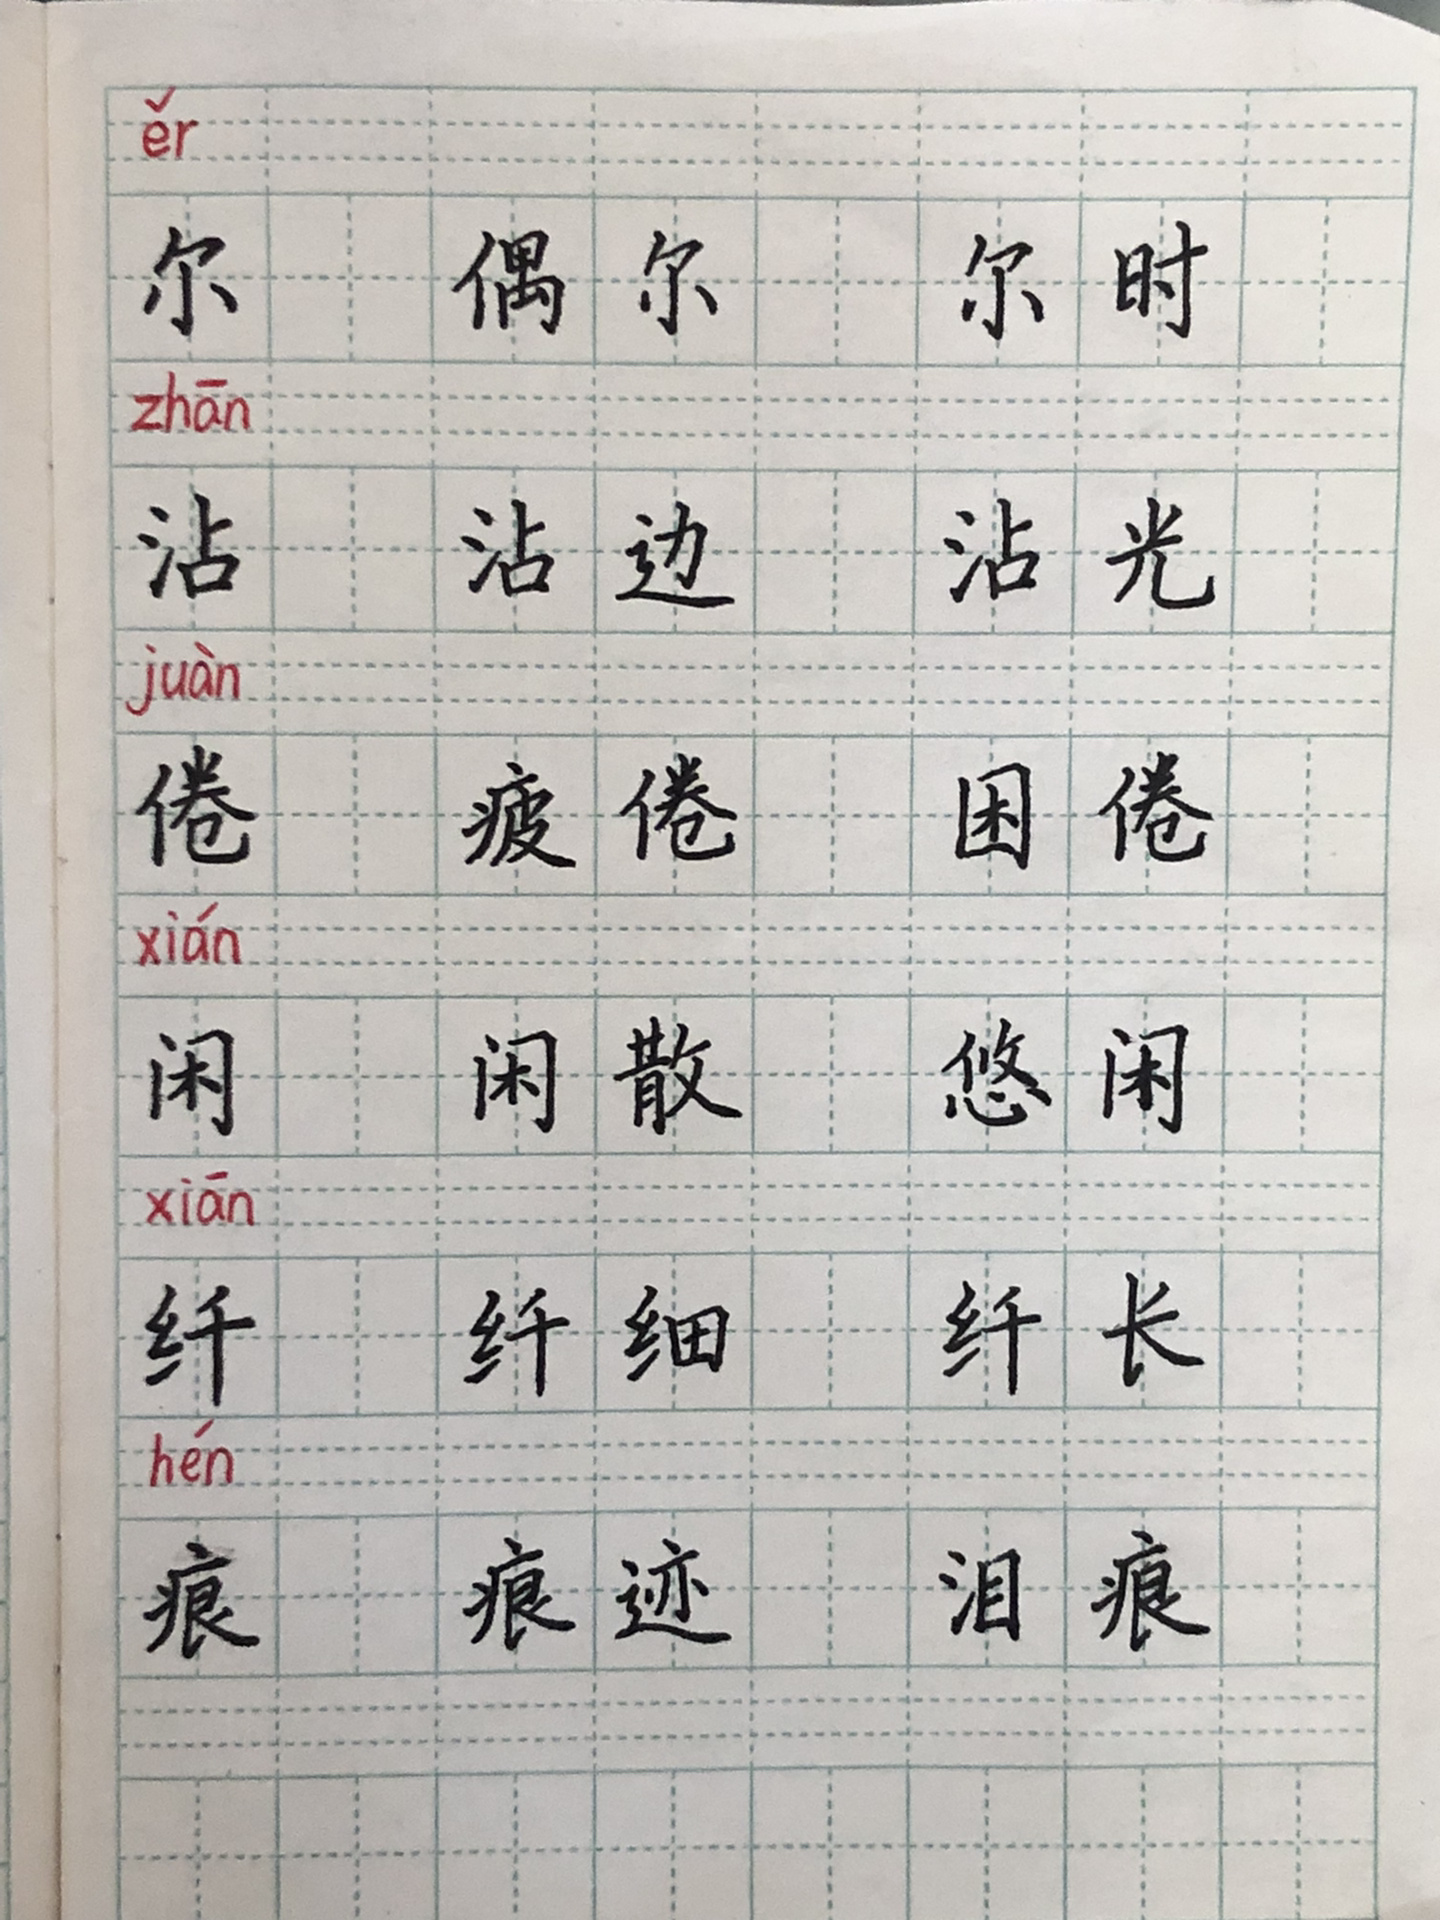 ěr
尔 偶尔 尔时
zhān
沾 沾边 沾光
juàn
倦 疲倦 困倦
xián
闲 闲散 悠闲
xiān
纤 纤细 纤长
hén
痕 痕迹 泪痕